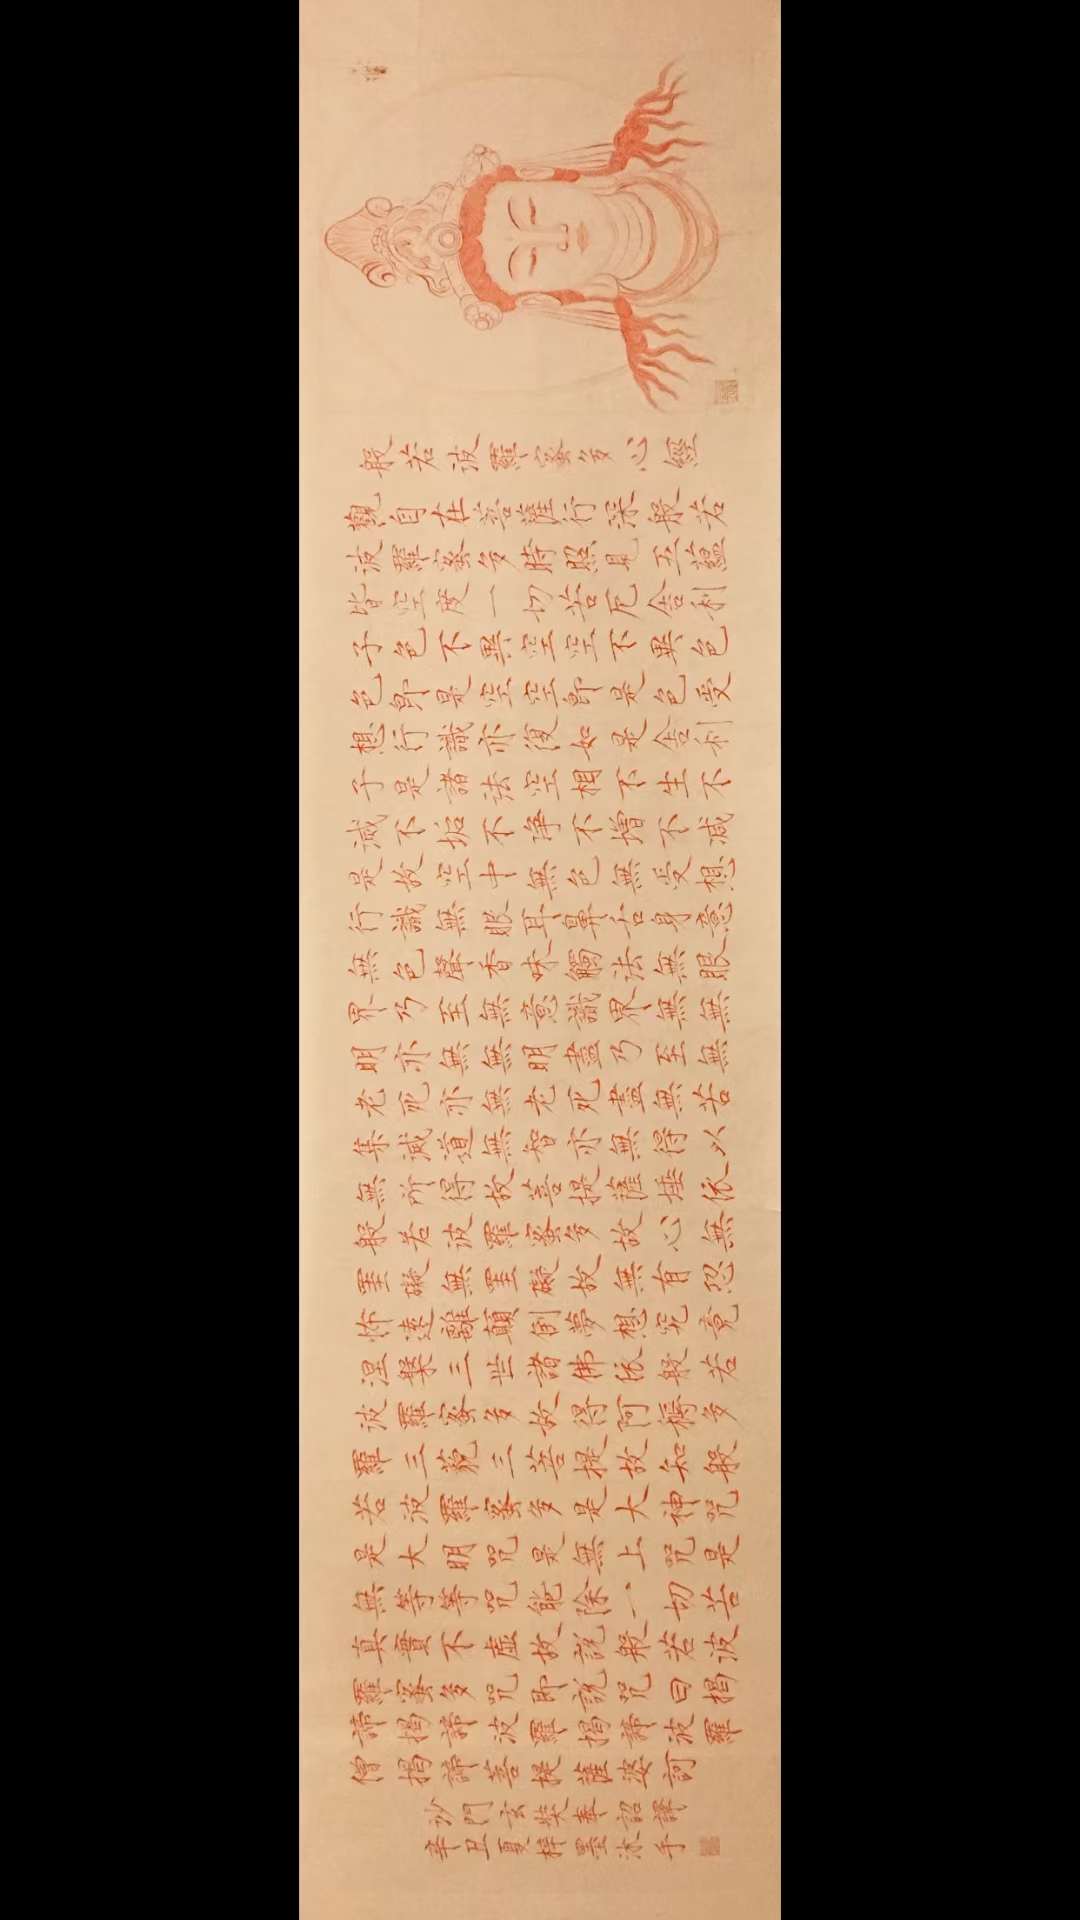 般若波羅蜜多心經
觀自在菩薩行深般若
波羅蜜多時照見五蘊
皆空度一切苦厄舍利
子色不異空空不異色
色即是空空即是色受
想行識亦復如是舍利
子是諸法空相不生不
滅不垢不淨不增不減
是故空中無色無受想
行識無眼耳鼻舌身意
無色聲香味觸法無眼
界乃至無意識界無無
明亦無無明盡乃至無
老死亦無老死盡無苦
集滅道無智亦無得以
無所得故菩提薩埵依
般若波羅蜜多故心無
罣礙無罣礙故無有恐
怖遠離顛倒夢想究竟
涅槃三世諸佛依般若
波羅蜜多故得阿耨多
羅三藐三菩提故知般
若波羅蜜多是大神咒
是大明咒是無上咒是
無等等咒能除一切苦
真實不虛故說般若波
羅蜜多咒即說咒曰揭
諦揭諦波羅揭諦波羅
僧揭諦菩提薩婆訶
沙門玄奘奉詔譯
辛丑夏梓墨沐手